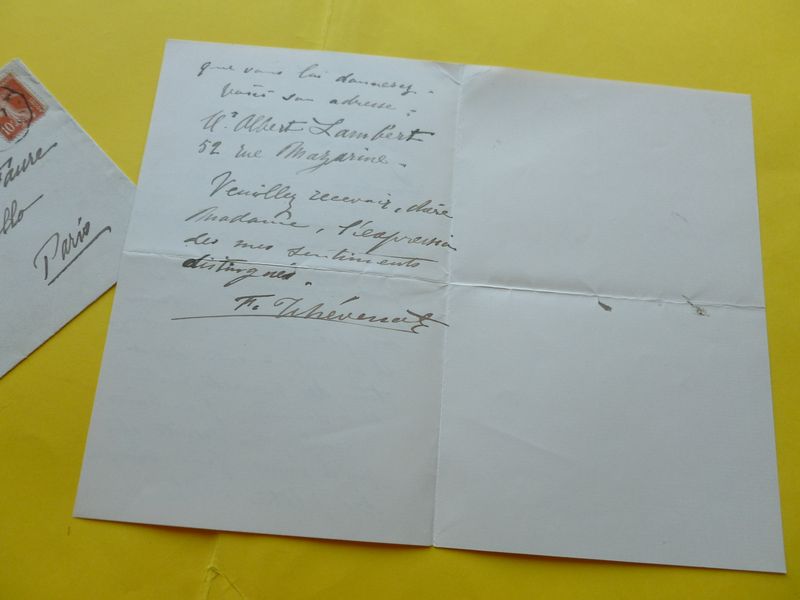 que vous lui donnerez.
voici son adresse :
Mr Albert Lambert
52 rue Mazarine.
Veuillez recevoir, chère
Madame, l'expression
des mes sentiments
distingués.
F. Thévenot
Faure
Paris
10c